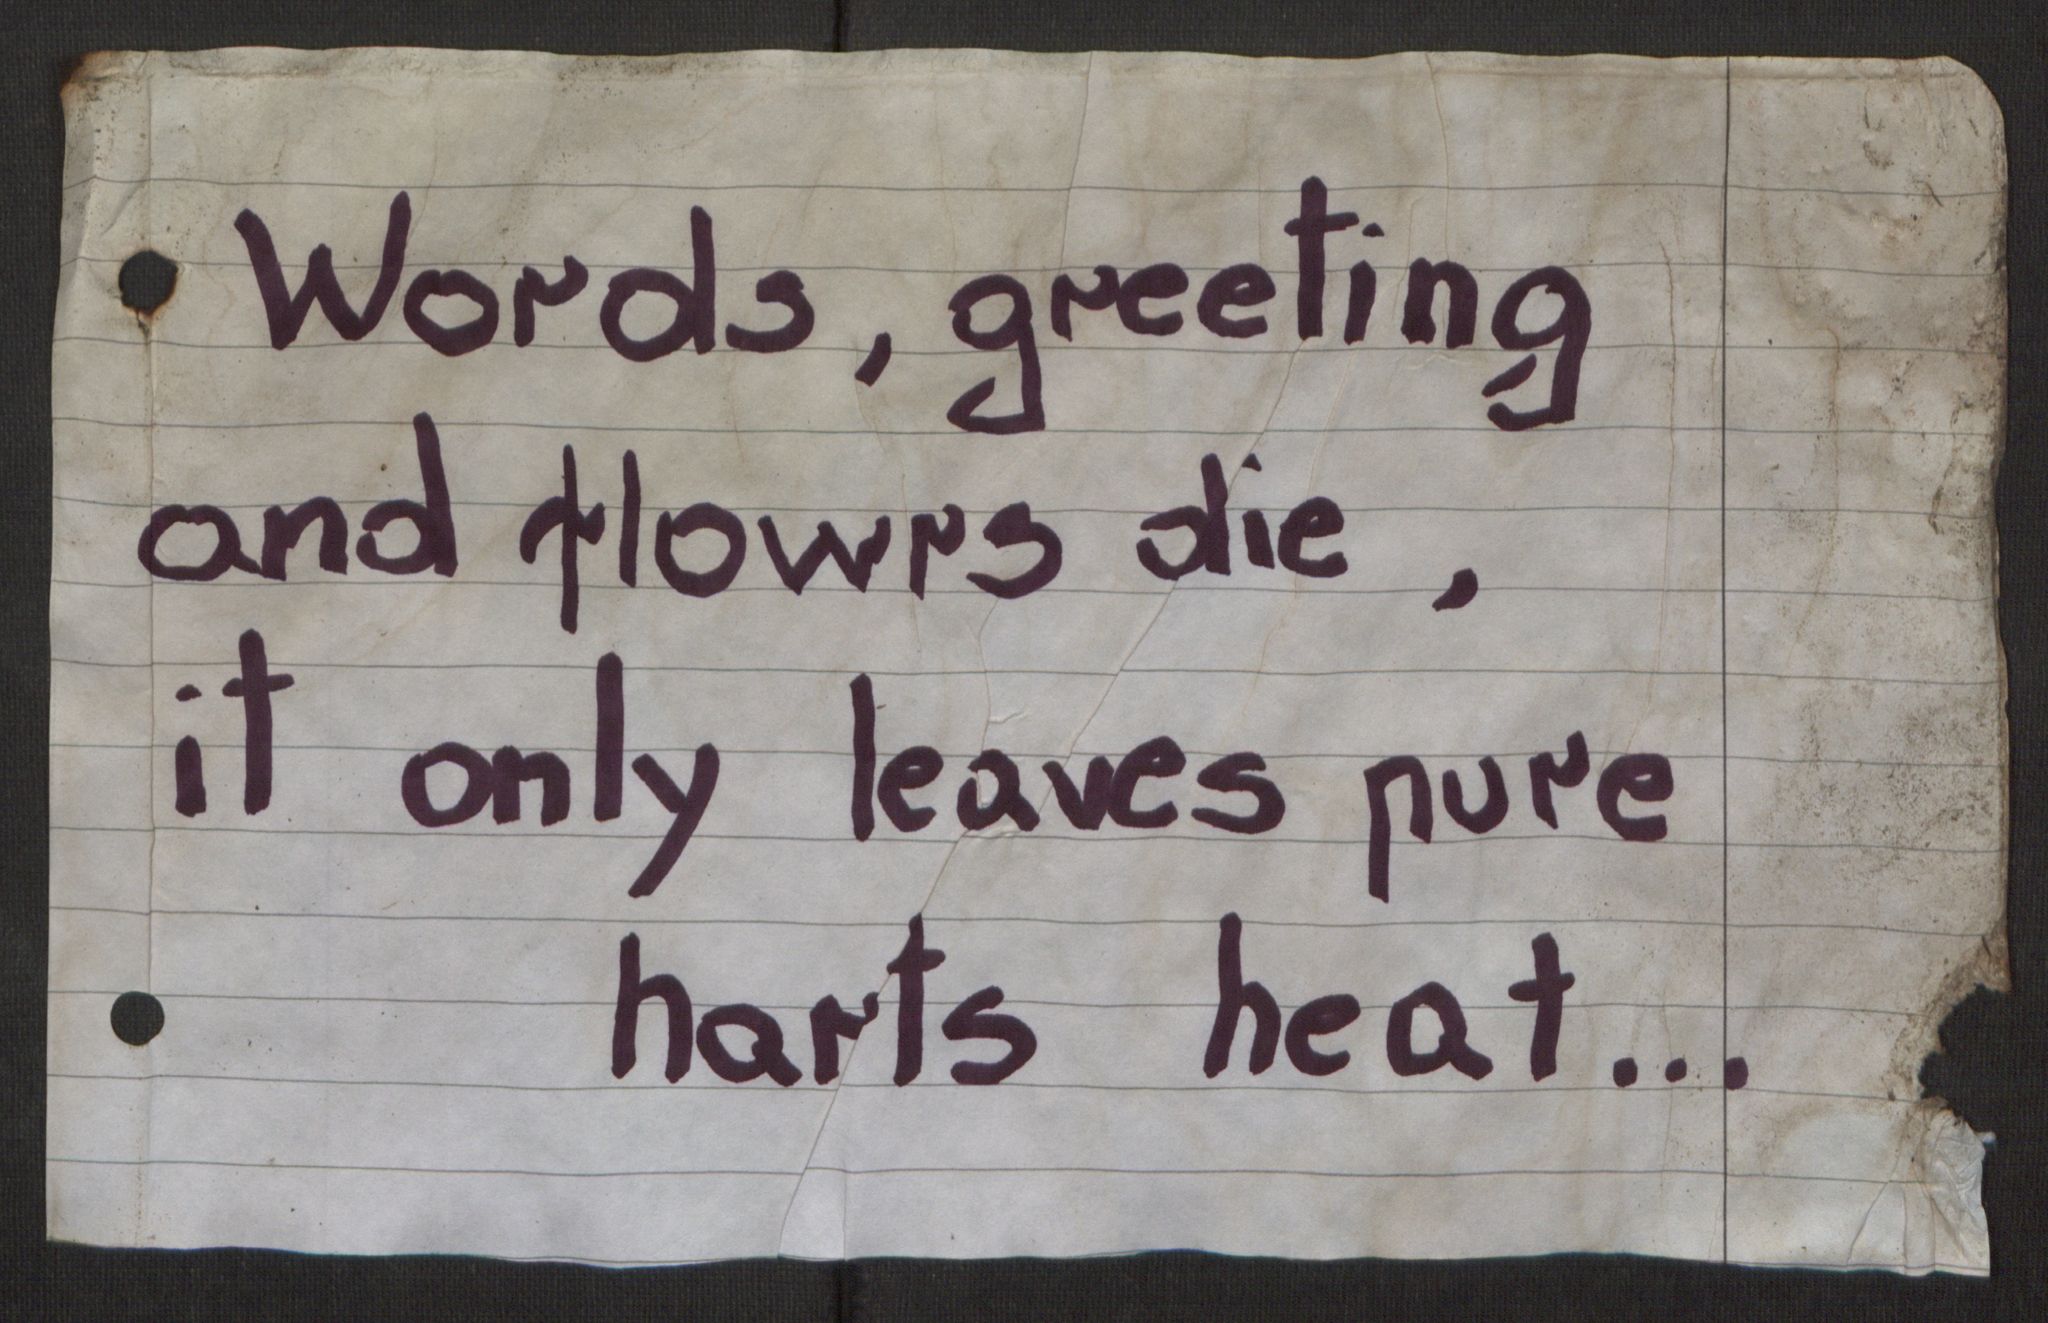 Words, greeting
and flowrs die,
it only leaves pure
harts heat...